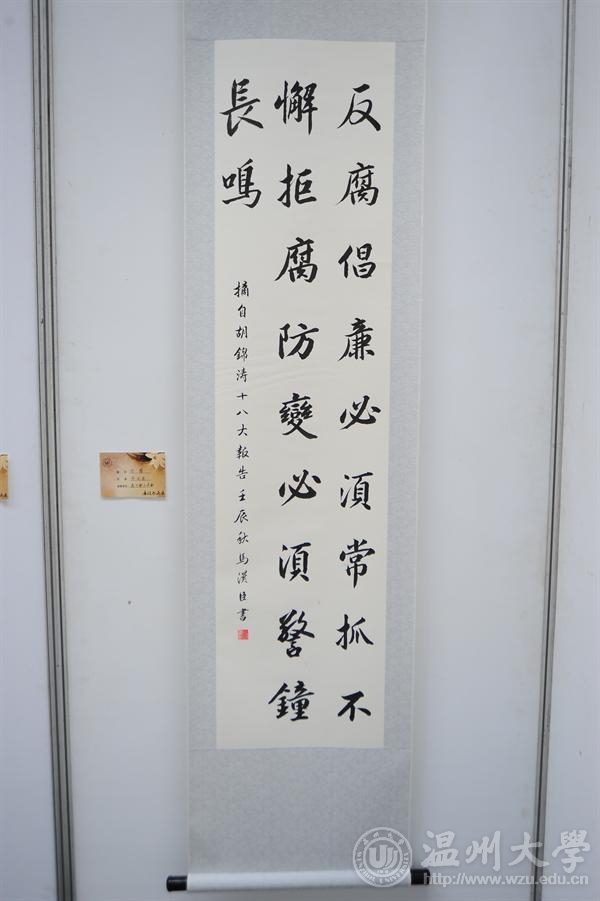 反腐倡廉必須常抓不
懈拒腐防變必須警鐘
長鳴
摘自胡錦涛十八大報告壬辰秋馬漢臣書
温州大学
http://www.wzu.edu.cn